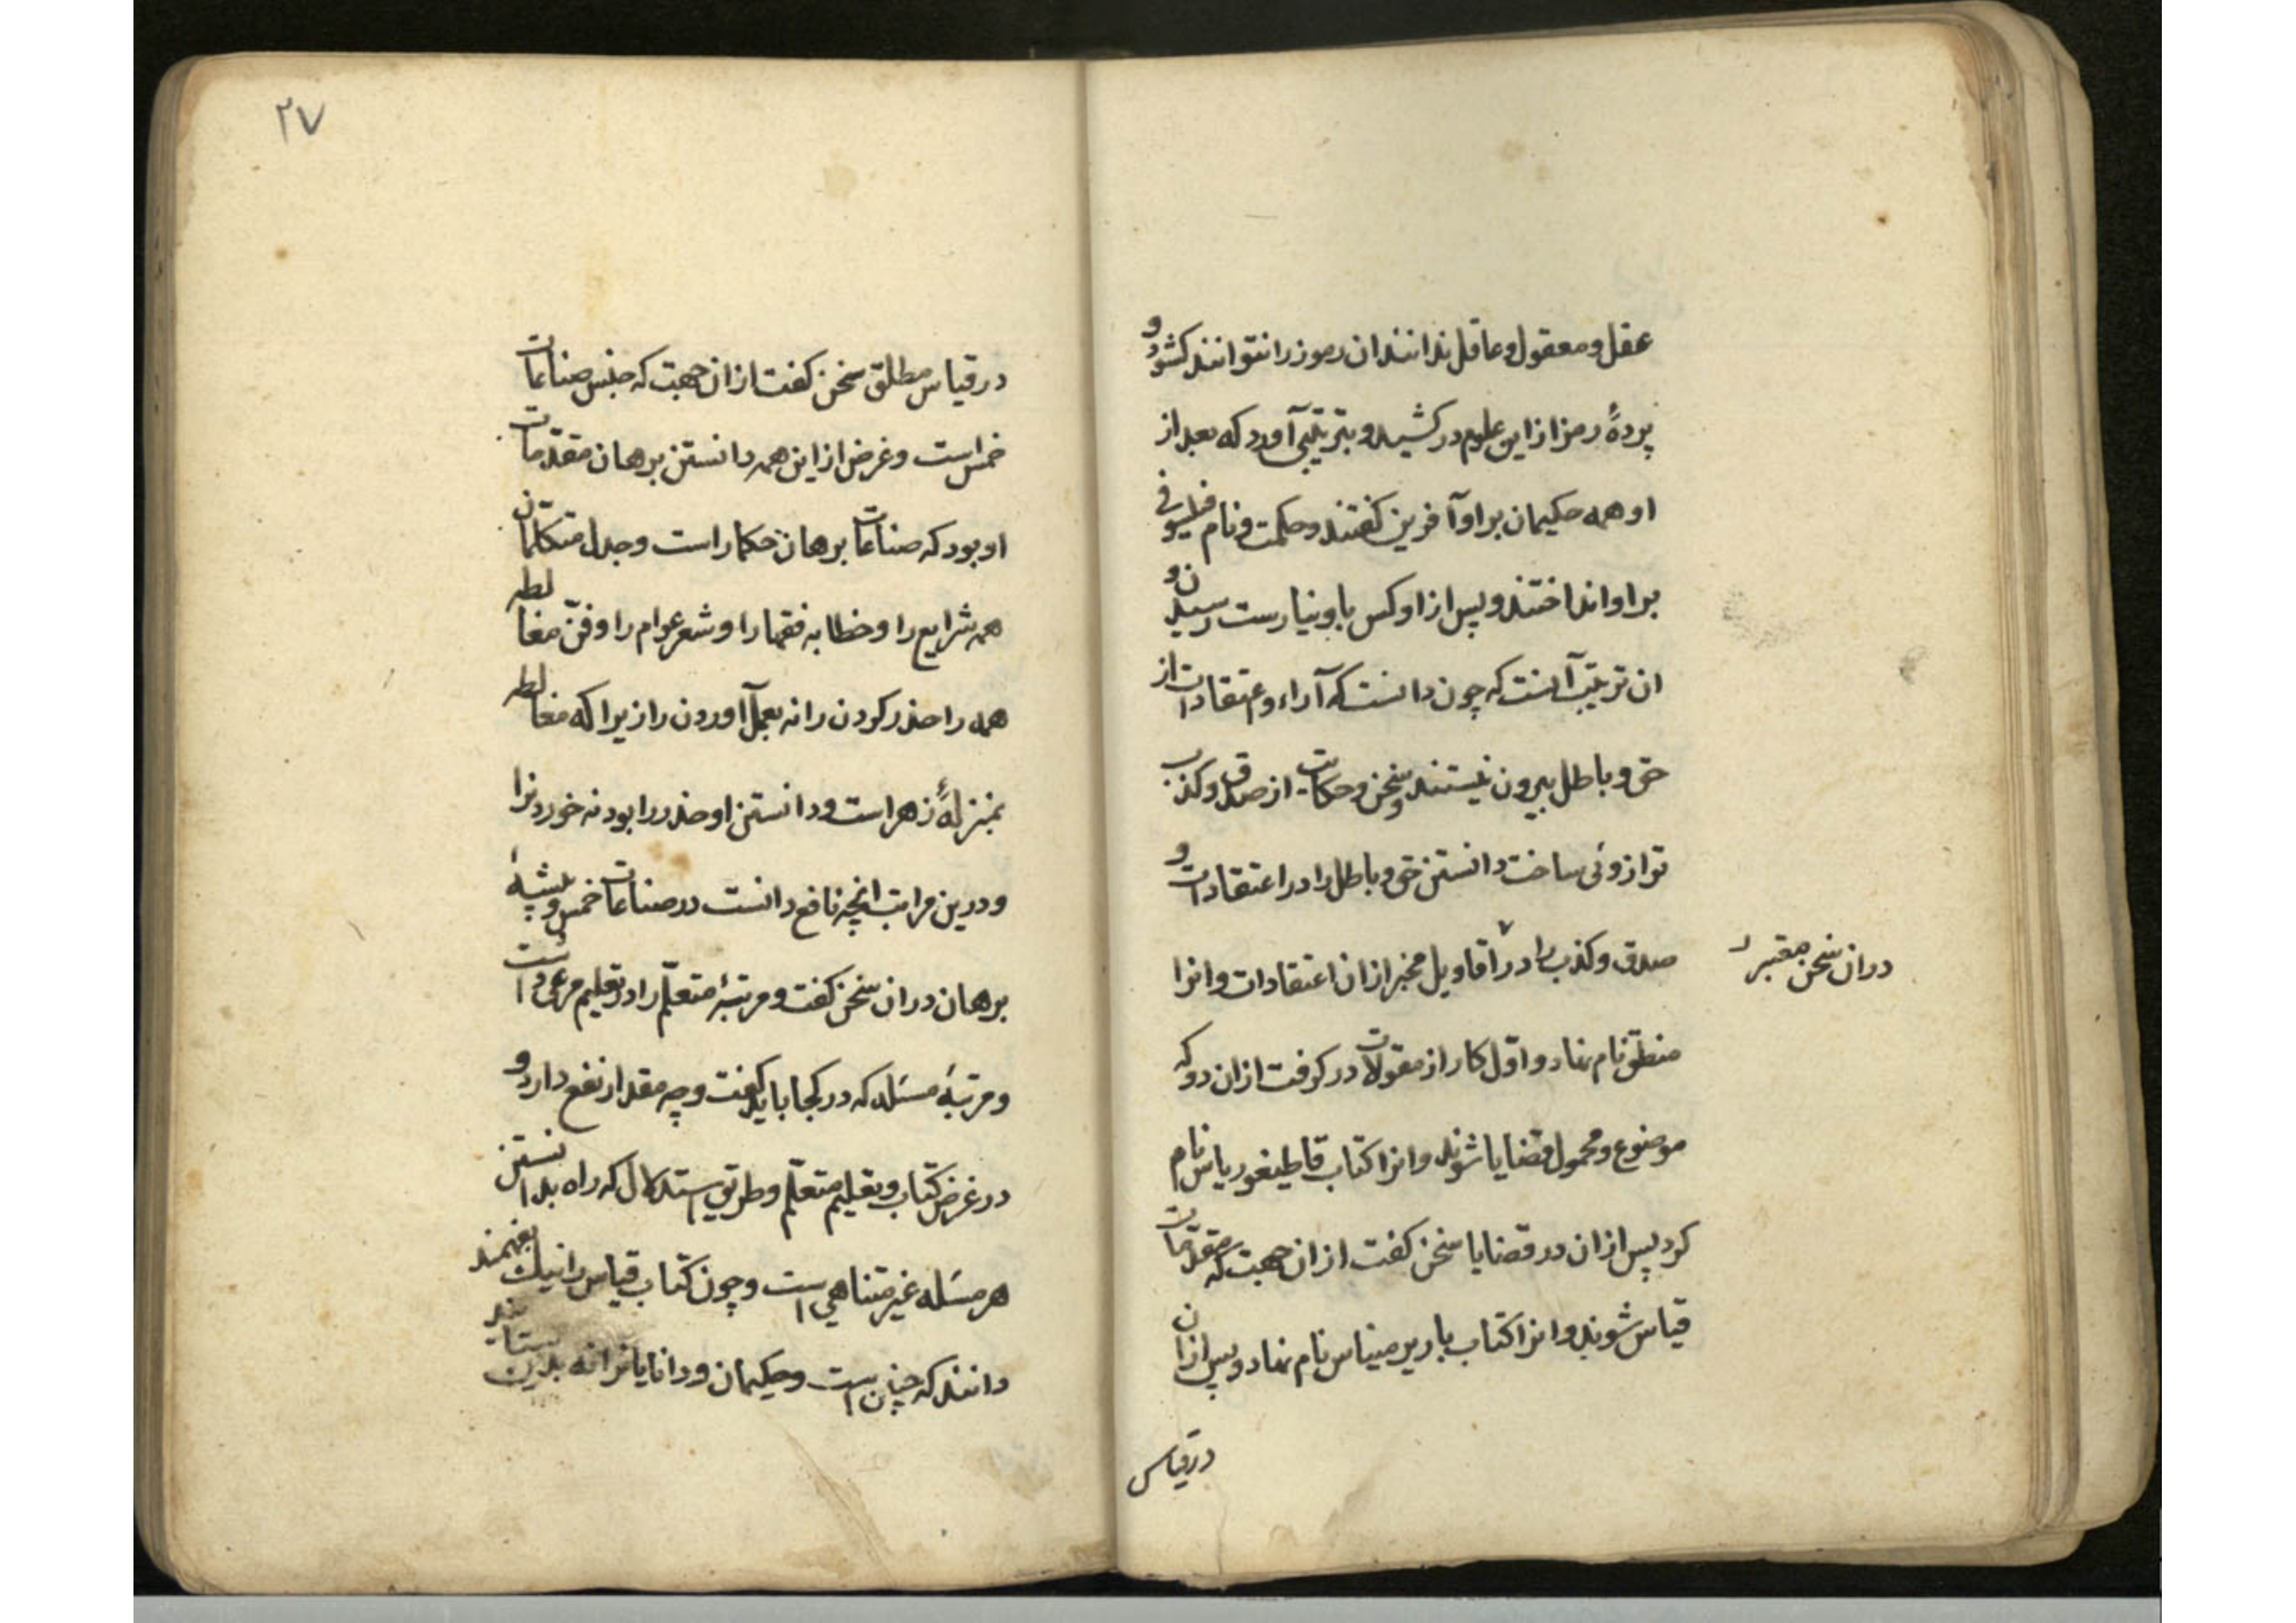 عقل و معقول و عاقل ندانند ان رموز را نتوانند کشود و
پردهٔ رمز از این علوم در کشید و بترتیبی آورد که بعد از
او همه حکیمان بر او آفرین کفتند و حکمت و نام فیلسوفی
بر او انداختند و پس از او کس باو نیارست رسیدن و
ان ترتیب آنست که چون دانست که آراء و اعتقادات از
حق و باطل بیرون نیستند و سخن و حکایت از صدق و کذب
ترازوئی ساخت دانستن حق و باطل را در اعتقادات و
صدق و کذب را در اقاویل مخبر از ان اعتقادات و انرا
در ان سخن معتبر
منطق نام نهاد و اوّل کار از مقولات در کرفت از ان رو که
موضوع و محمول قضایا شوند و انرا کتاب قاطیغوریاس نام
کرد پس از ان در قضایا سخن کفت از ان جهت که مقدّمات
قیاس شوند و انرا کتاب باریرمیناس نام نهاد و پس از ان
در قیاس
۲۷
در قیاس مطلق سخن کفت از ان جهت که جنس صناعات
خمس است و غرض از این همه دانستن برهان مقدّمات
او بود که صناعات برهان حکما راست و جدل متکلّمان
همه شرایع را و خطابه فقها را و شعر عوام را و فنّ مغالطه
همه را حذر کردن را نه بعمل آوردن را زیرا که مغالطه
بمنزلهٔ زهر است و دانستن او حذر را بود نه خوردنرا
و درین مراتب انچه نافع دانست در صناعات خمس و پیشهٔ
برهان در ان سخن کفت و مرتبهٔ متعلّم را در تعلیم مرعی داشت
و مرتبهٔ مسئله که در کجا باید کفت و چه مقدار نفع دارد و
در غرض کتاب و تعلیم متعلّم و طریق استدلال که راه بدانستن
هر مسئله غیر متناهی است و چون کتاب قیاس را نیک بفهمند
دانند که چنین است و حکیمان و دانایانرا نه بدین ستایند